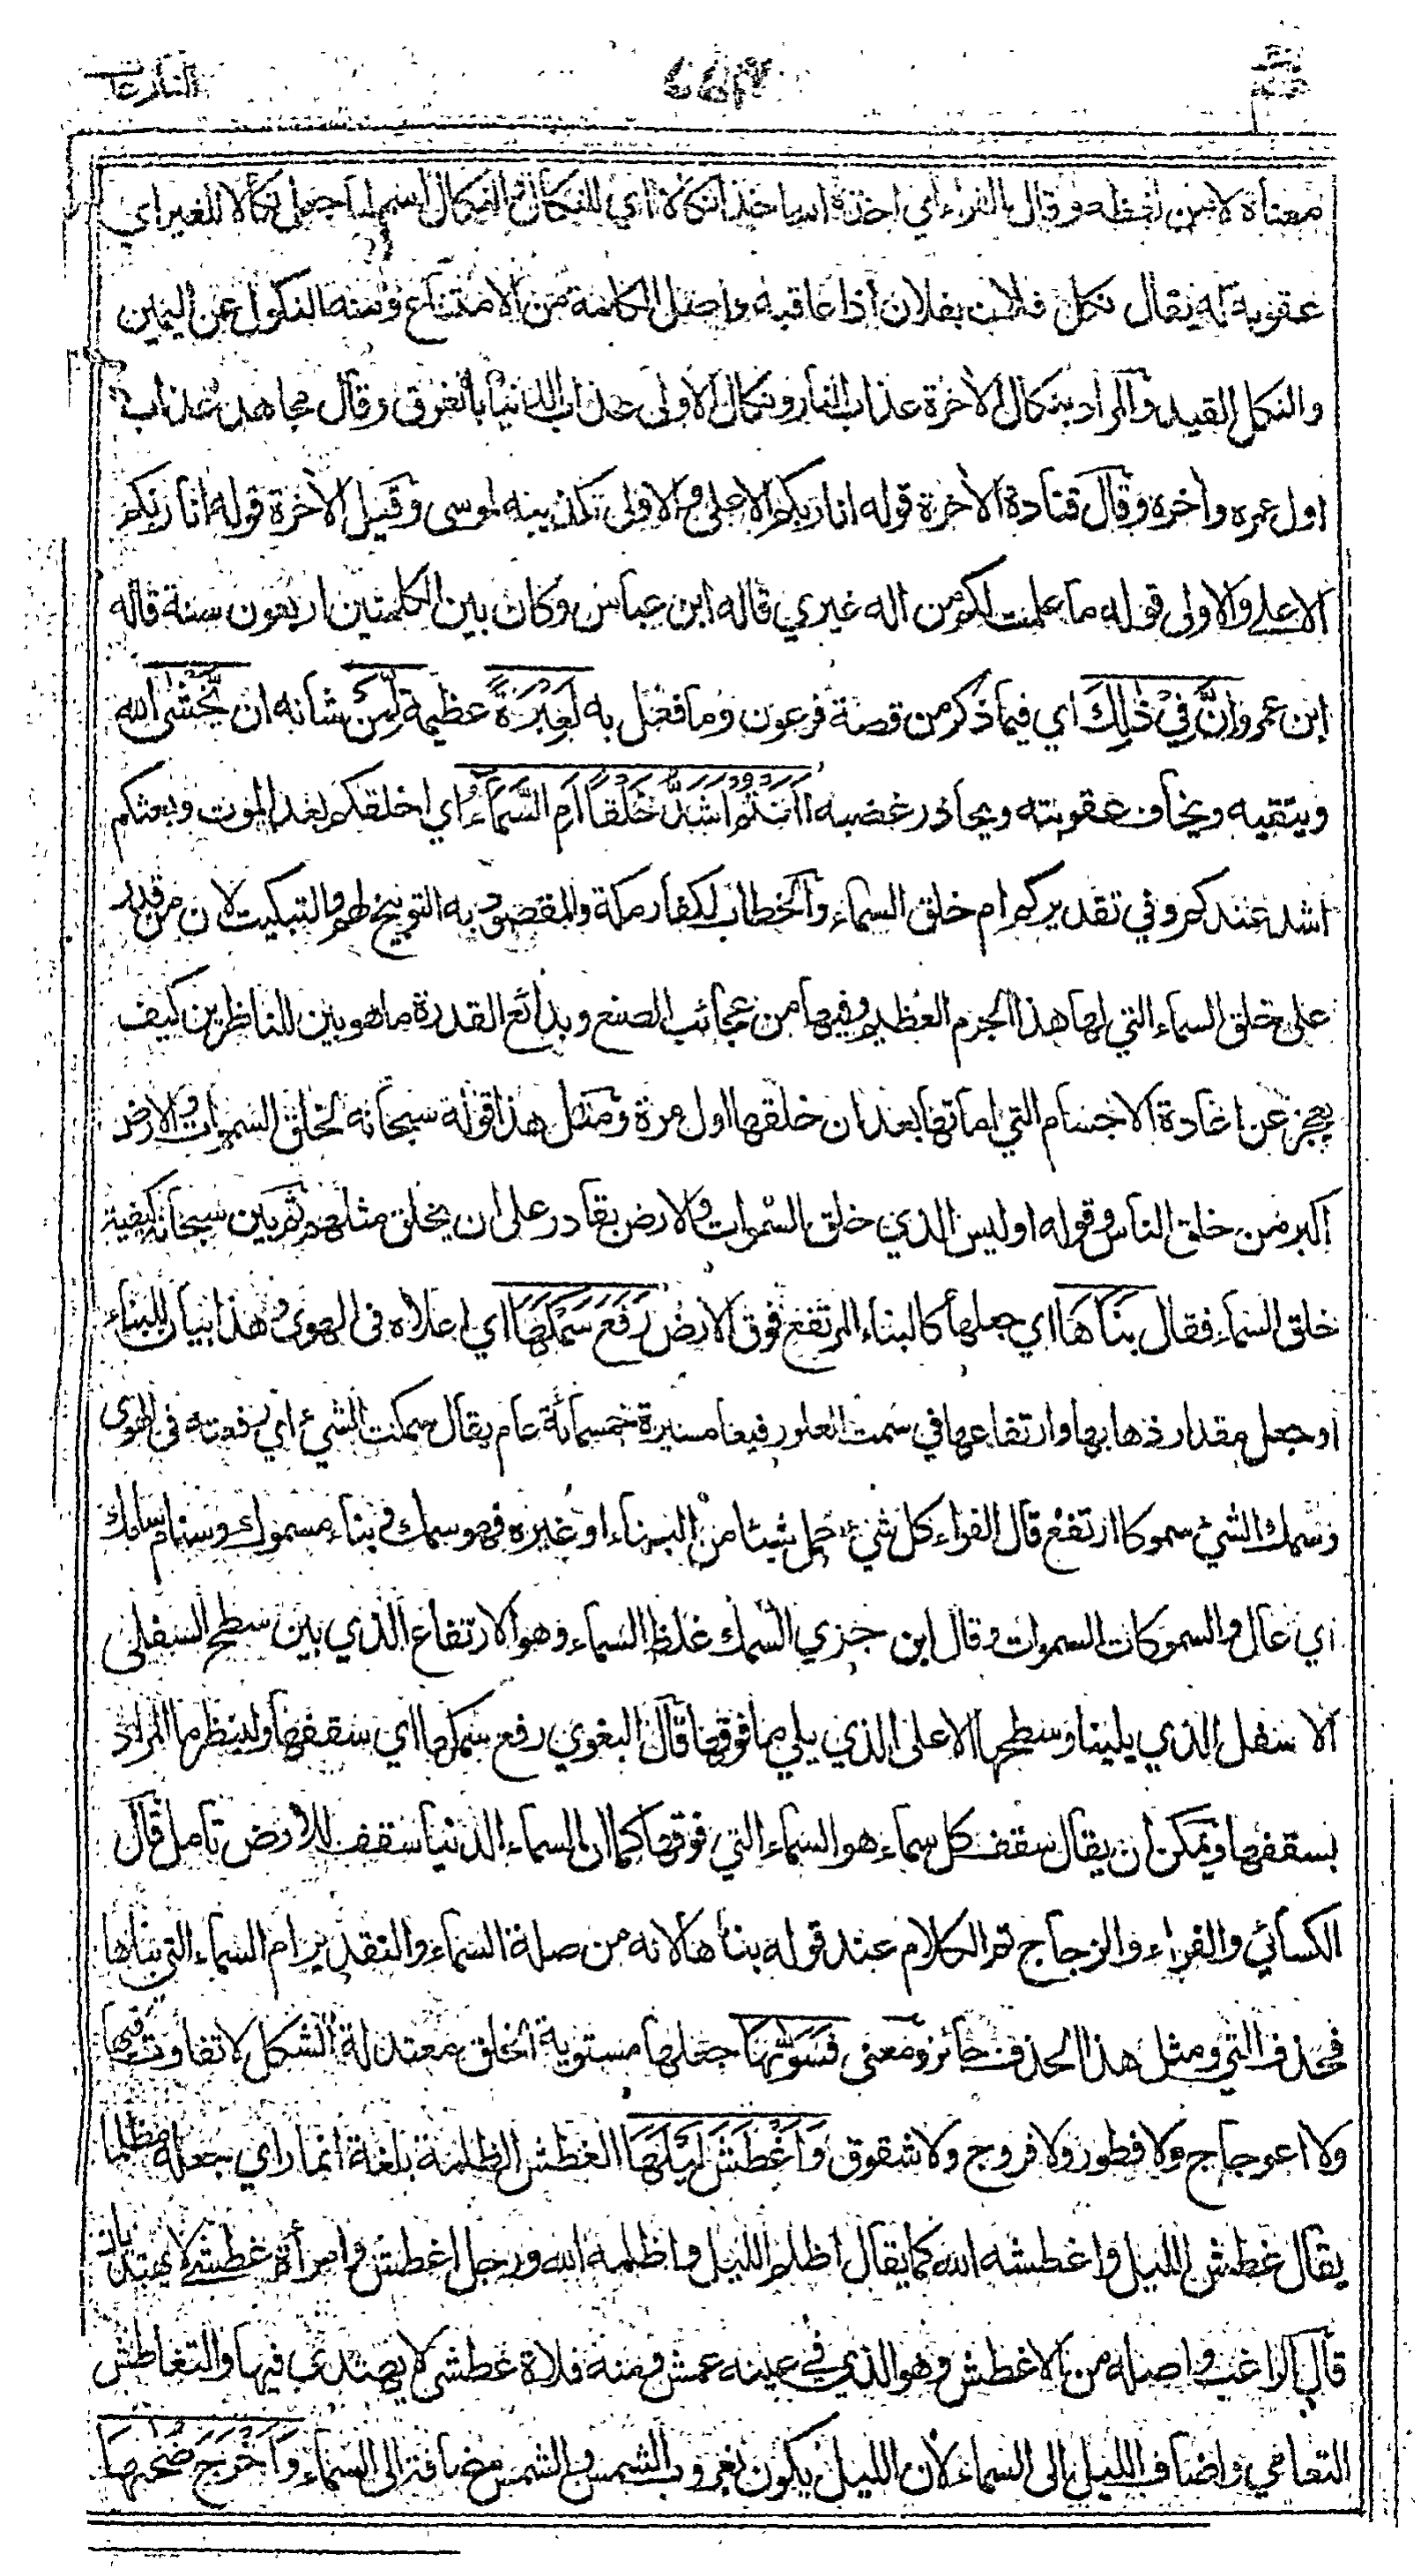 عم ٢٢٣ النازعات
معناه لا من لفظه وقال الفراء اي اخذه الله اخذا نكالا اي للنكال والنكال اسم لما جعل نكالا للغير اي
عقوبة له يقال نكل فلان بفلان اذا عاقبه واصل الكلمة من الامتناع ومنه النكول عن اليمين
والنكل القيد والمراد بنكال الاخرة عذاب النار ونكال الاولى عذاب الدنيا بالغرق وقال مجاهد عذاب
اول عمره واخره وقال قتادة الاخرة قوله انا ربكم الاعلى والاولى تكذيبه لموسى وقيل الاخرة قوله انا ربكم
الاعلى والاولى قوله ما علمت لكم من اله غيري قاله ابن عباس وكان بين الكلمتين اربعون سنة قاله
ابن عمرو اِنَّ فِيْ ذٰلِكَ اي فيما ذكر من قصة فرعون وما فعل به لَعِبْرَةً عظيمة لِّمَنْ شانه ان يَّخْشٰى الله
ويتقيه ويخاف عقوبته ويحاذر غضبه ءَاَنْتُمْ اَشَدُّ خَلْقًا اَمِ السَّمَآءُ اي اخلقكم بعد الموت وبعثكم
اشد عندكم وفي تقديركم ام خلق السماء والخطاب لكفار مكة والمقصود به التوبيخ لهم والتبكيت لان من قدر
على خلق السماء التي لها هذا الجرم العظيم وفيها من عجائب الصنع وبدائع القدرة ما هو بين للناظرين كيف
يعجز عن اعادة الاجسام التي اماتها بعد ان خلقها اول مرة ومثل هذا قوله سبحانه لخلق السموات والارض
اكبر من خلق الناس وقوله اوليس الذي خلق السموات والارض بقادر على ان يخلق مثلهم ثم بين سبحانه كيفية
خلق السماء فقال بَنٰىهَا اي جعلها كالبناء المرتفع فوق الارض رَفَعَ سَمْكَهَا اي اعلاه في الهوى وهذا بيان للبناء
او جعل مقدار ذهابها وارتفاعها في سمت العلو رفيعا مسيرة خمسمائة عام يقال سمكت الشيء اي رفعته في الهوى
وسمك الشيء سموكا ارتفع قال الفراء كل شيء حمل شيئا من البناء او غيره فهو سمك وبناء مسموك وسنام سامك
اي عال والسموكات السموات وقال ابن جزي السمك غلظ السماء وهو الارتفاع الذي بين سطح السفلى
الاسفل الذي يلينا وسطحها الاعلى الذي يلي ما فوقها قال البغوي رفع سمكها اي سقفها ولينظر ما المراد
بسقفها ويمكن ان يقال سقف كل سماء هو السماء التي فوقها كما ان السماء الدنيا سقف للارض تامل قال
الكسائي والفراء والزجاج تم الكلام عند قوله بناها لانه من صلة السماء والتقدير ام السماء التي بناها
فحذف التي ومثل هذا الحذف جائز ومعنى فَسَوّٰىهَا جعلها مستوية الخلق معتدلة الشكل لا تفاوت فيها
ولا اعوجاج ولا فطور ولا فروج ولا شقوق وَاَغْطَشَ لَيْلَهَا الغطش الظلمة بلغة انمار اي جعله مظلما
يقال غطش الليل واغطشه الله كما يقال اظلم الليل واظلمه الله ورجل اغطش وامرأة غطشى لا يهتديان
قال الراغب واصله من الاغطش وهو الذي في عينه عمش ومنه فلاة غطشى لا يهتدى فيها والتغاطش
التعامي واضاف الليل الى السماء لان الليل يكون بغروب الشمس والشمس مضافة الى السماء وَاَخْرَجَ ضُحٰىهَا